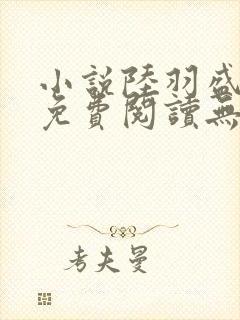 小說陸羽盛
免費閱讀無
考夫曼